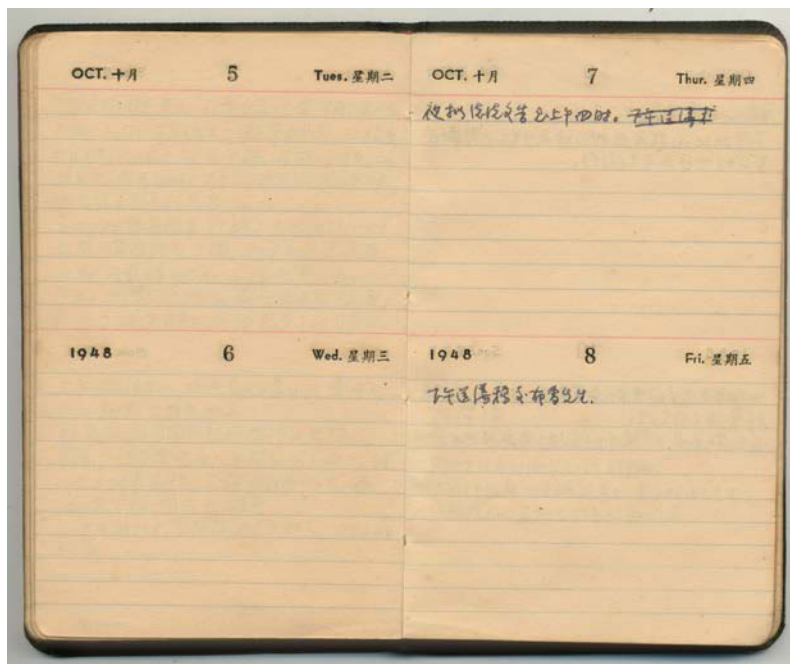 OCT. 十月 5 Tues. 星期二
1948 6 Wed. 星期三
OCT. 十月 7 Thur. 星期四
夜拟 文告至上午四时。
1948 8 Fri. 星期五
下午送 稿至布雷先生.